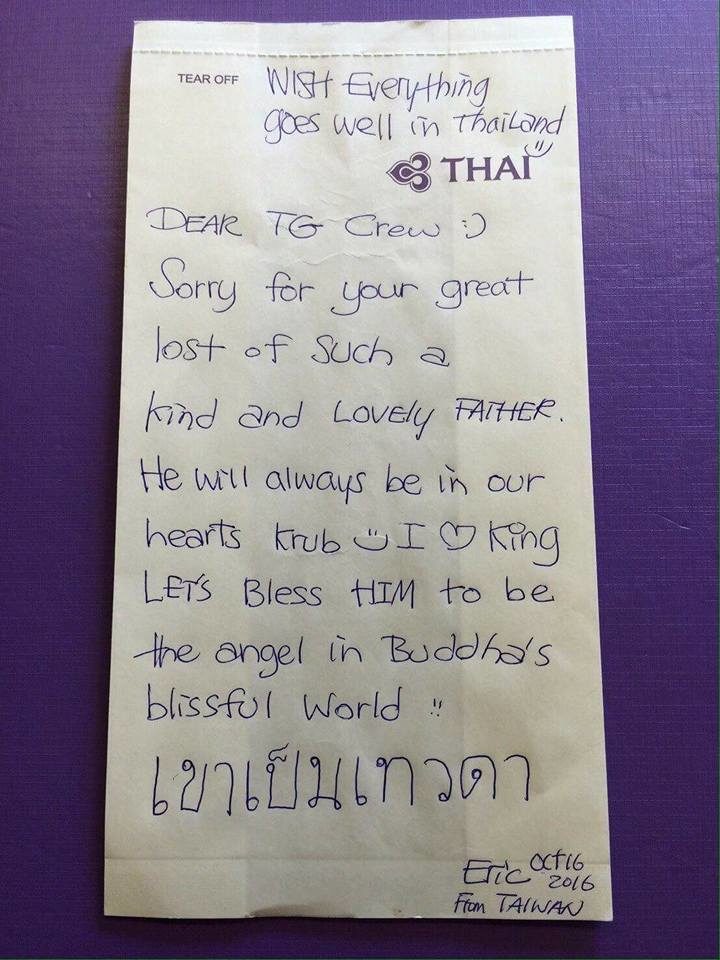 TEAR OFF WISH Everything
goes well in Thailand
THAI
DEAR TG Crew :)
Sorry for your great
lost of such a
kind and LOVELY FATHER.
He will always be in our
hearts krub I ♡ King
LET'S Bless HIM to be
the angel in Buddha's
blissful World
เขาเป็นเทวดา
Eric Oct 16
2016
From TAIWAN